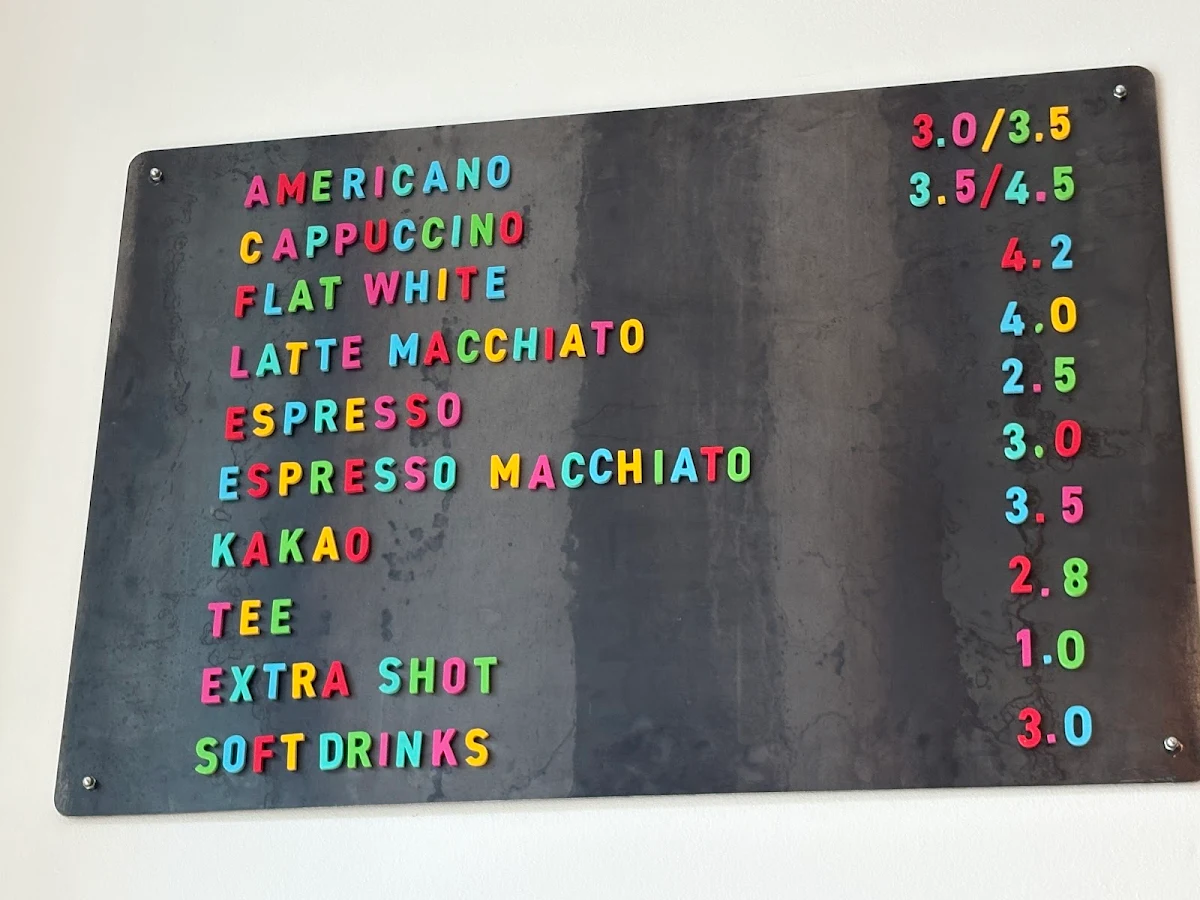 AMERICANO 3.0/3.5
CAPPUCCINO 3.5/4.5
FLAT WHITE 4.2
LATTE MACCHIATO 4.0
ESPRESSO 2.5
ESPRESSO MACCHIATO 3.0
KAKAO 3.5
TEE 2.8
EXTRA SHOT 1.0
SOFT DRINKS 3.0